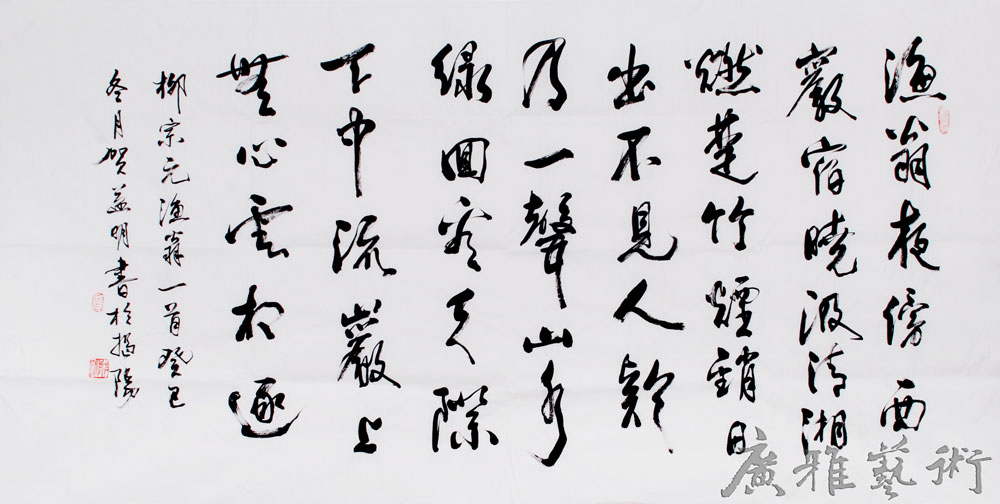 漁翁夜傍西
巖宿曉汲清湘
燃楚竹煙銷日
出不見人欸
乃一聲山水
綠回看天際
下中流巖上
無心雲相逐
柳宗元漁翁一首癸巳
冬月賀益明書於揭陽
廣雅藝術